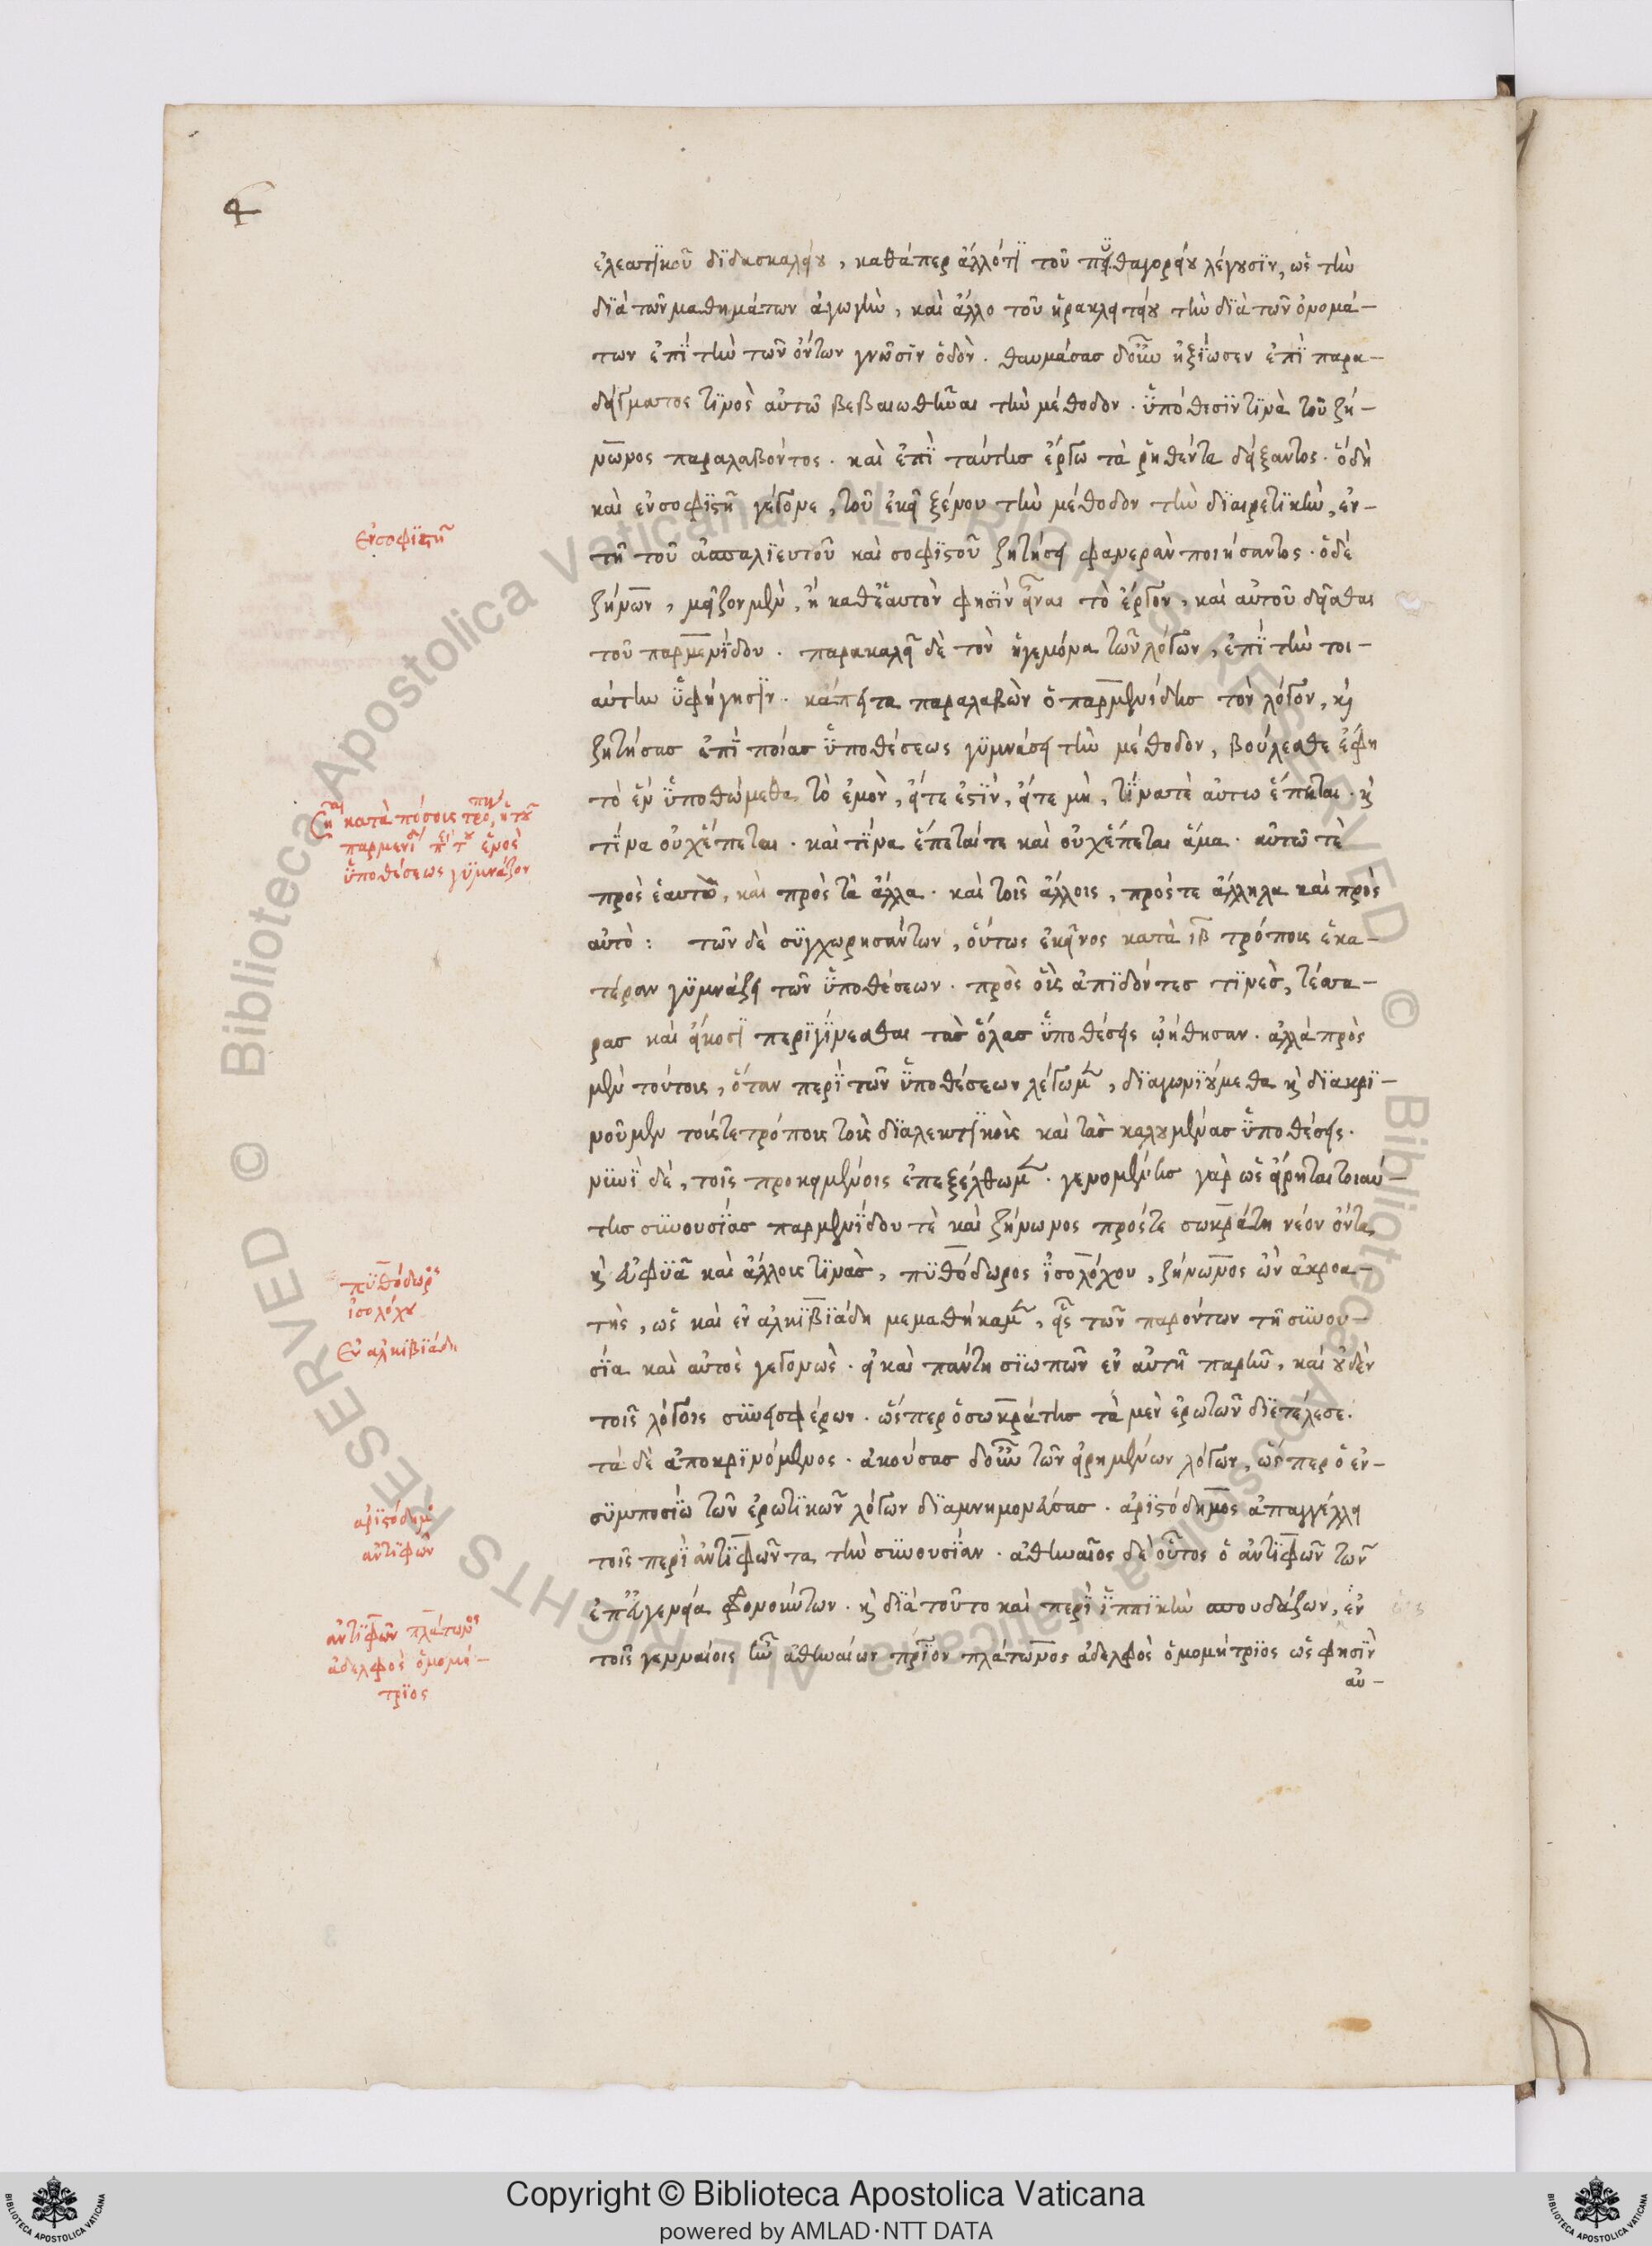 ἐλεατικοῦ διδασκαλείου, καθάπερ ἄλλό τι τοῦ πυθαγορείου λέγουσϊν, ὡς τὴν
δϊὰ τῶν μαθημάτων ἀγωγὴν, καὶ ἄλλο τοῦ ἡρακλειτείου τὴν δϊὰ τῶν ὀνομά-
των ἐπῒ τὴν τῶν ὄντων γνῶσϊν ὁδὸν. θαυμάσας δ' οὖν ἠξΐωσεν ἐπῒ παρα-
δείγματος τϊνὸς αὐτῶ βεβαιωθῆναι τὴν μέθοδον. ὑπόθεσϊν τϊνὰ τοῦ ζή-
νωνος παραλαβόντος. καὶ ἐπῒ ταύτης ἔργω τὰ ῥηθέντα δείξαντος. ὃ δὴ
καὶ ἐν σοφϊστῆ γέγονε, τοῦ ἐκεῖ ξένου τὴν μέθοδον τὴν δϊαιρετϊκὴν, ἐν-
τῆ τοῦ ἀσπαλϊευτοῦ καὶ σοφϊστοῦ ζητήσει φανερὰν ποιήσαντος. ὁ δέ
ζήνων, μεῖζον μὲν, ἢ καθ' ἑαυτὸν φησὶν εἶναι τὸ ἔργον, καὶ αὐτοῦ δεῖσθαι
τοῦ παρμενΐδου. παρακαλεῖ δὲ τὸν ἡγεμόνα τῶν λόγων, ἐπῒ τὴν τοι-
αύτην ὑφήγησϊν. κἄπειτα παραλαβὼν ὁ παρμενίδης τὸν λόγον, καὶ
ζητήσας ἐπῒ ποίας ὑποθέσεως γϋμνάσει τὴν μέθοδον, βούλεσθε ἔφη
τὸ ἓν ὑποθώμεθα τὸ ἐμὸν, εἴτε ἐστϊν, εἴτε μὴ, τΐνα τὲ αὐτω ἕπεται. καὶ
τΐνα οὐχ ἕπεται. καὶ τΐνα ἕπεταί τε καὶ οὐχ ἕπεται ἅμα. αὐτῶ τὲ
πρὸς ἑαυτὸ, καὶ πρὸς τὰ ἄλλα. καὶ τοῖς ἄλλοις, πρός τε ἄλληλα καὶ πρὸς
αὐτὸ: τῶν δὲ σϋγχωρησάντων, οὕτως ἐκεῖνος κατὰ ιβ τρόπους ἑκα-
τέραν γϋμνάζει τῶν ὑποθέσεων. πρὸς οὓς ἀπϊδόντες τϊνὲς, τέσσα-
ρας καὶ εἴκοσϊ περϊγΐνεσθαι τὰς ὅλας ὑποθέσεις ᾠήθησαν. ἀλλὰ πρὸς
μὲν τούτους, ὅταν περῒ τῶν ὑποθέσεων λέγωμεν, δϊαγωνϊούμεθα καὶ δϊακρϊ-
νοῦμεν τούς τε τρόπους τοὺς δϊαλεκτϊκοὺς καὶ τὰς καλουμένας ὑποθέσεις.
νϋνῒ δὲ, τοῖς προκειμένοις ἐπεξέλθωμεν. γενομένης γὰρ ὡς εἴρηται τοιαύ-
της σϋνουσΐας παρμενΐδου τὲ καὶ ζήνωνος πρός τε σωκράτη νέον ὄντα,
καὶ εὐφϋᾶ καὶ ἄλλους τϊνὰς, πϋθόδωρος ἰσολόχου, ζήνωνος ὢν ἀκροα-
τὴς, ὡς καὶ ἐν ἀλκϊβϊάδη μεμαθήκαμεν, εἷς τῶν παρόντων τῆ σϋνου-
σΐα καὶ αὐτὸς γεγονὼς. εἰ καὶ πάντη σϊωπῶν ἐν αὐτῆ παρῆν, καὶ οὐδὲν
τοῖς λόγοις σϋνεισφέρων. ὥσπερ ὁ σωκράτης τὰ μὲν ἐρωτῶν δϊετέλεσε.
τὰ δὲ ἀποκρϊνόμενος. ἀκούσας δ' οὖν τῶν εἰρημένων λόγων, ὥσπερ ὁ ἐν-
σϋμποσΐω τῶν ἐρωτϊκῶν λόγων δϊαμνημονεύσας. ἀρϊστόδημος ἀπαγγέλλει
τοῖς περῒ ἀντϊφῶντα τὴν σϋνουσΐαν. ἀθηναῖος δὲ οὗτος ὁ ἀντϊφῶν τῶν
ἐπ' εὐγενεία φρονούντων. καὶ δϊὰ τοῦτο καὶ περῒ ἱππϊκὴν σπουδάζων, ἐν
τοῖς γενναίοις τῶν ἀθηναίων πάτρϊον πλάτωνος ἀδελφὸς ὁμομήτρϊος ὥς φησϊν
αὐ-
ἐν σοφϊστῆ
πϋθόδωρος
ἰσολόχου
ἐν ἀλκιβϊάδη
ἀρϊστόδημος
ἀντϊφῶν
ἀντϊφῶν πλάτωνος
ἀδελφὸς ὁμομή-
τρϊος
© Biblioteca Apostolica Vaticana ALL RIGHTS RESERVED
Copyright © Biblioteca Apostolica Vaticana
powered by AMLAD·NTT DATA